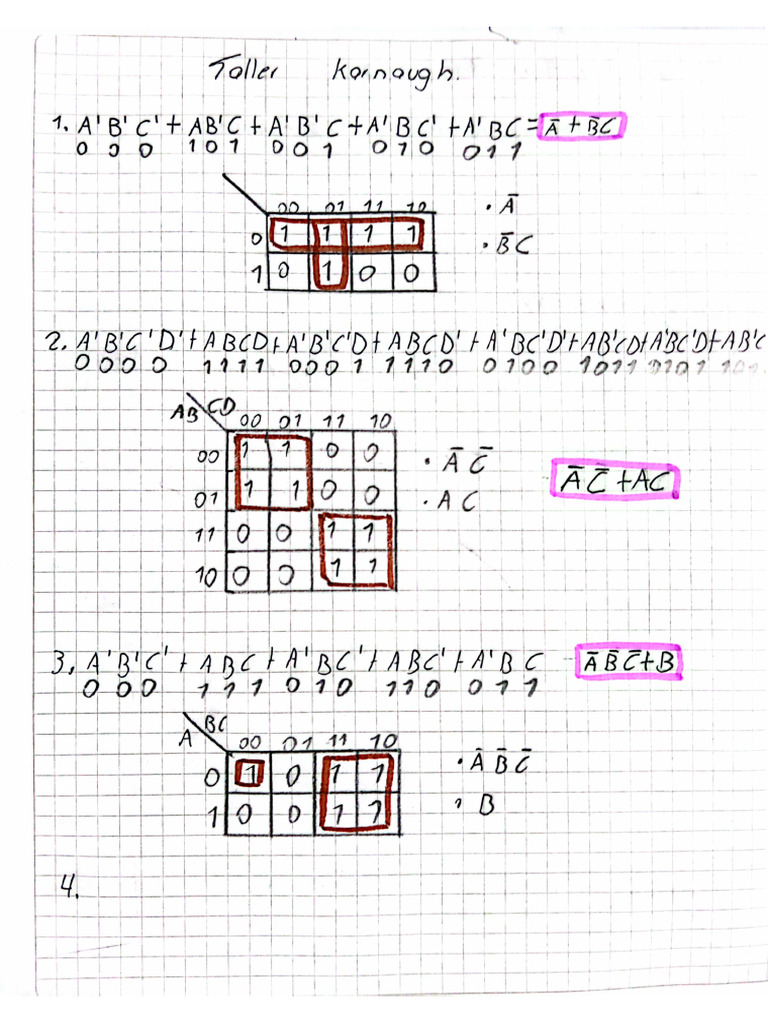 Taller Karnaugh.
1. A'B'C' + AB'C + A'B'C + A'BC' + A'BC = Ā + B̄C
0 0 0 1 0 1 0 0 1 0 1 0 0 1 1
00 01 11 10 • Ā
0 1 1 1 1
• B̄C
1 0 1 0 0
2. A'B'C'D' + ABCD + A'B'C'D + ABCD' + A'BC'D' + AB'CD + A'BC'D + AB'C
0 0 0 0 1 1 1 1 0 0 0 1 1 1 1 0 0 1 0 0 1 0 1 1 0 1 0 1 1 0 1
AB CD 00 01 11 10
00 1 1 0 0 • Ā C̄
Ā C̄ + AC
01 1 1 0 0 • A C
11 0 0 1 1
10 0 0 1 1
3, A'B'C' + ABC + A'BC' + ABC' + A'BC Ā B̄ C̄ + B
0 0 0 1 1 1 0 1 0 1 1 0 0 1 1
A BC 00 01 11 10
0 1 0 1 1 • Ā B̄ C̄
1 0 0 1 1 • B
4.